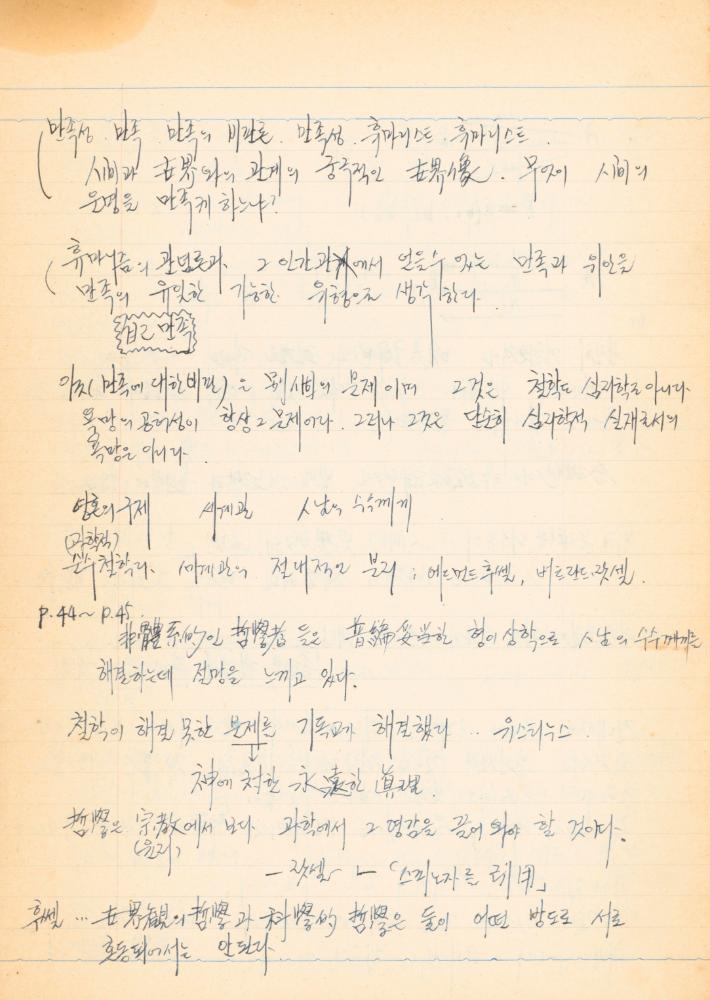 만족성. 만족. 만족의 비판론. 만족성. 휴마니스트. 휴마니스트.
시비과 世界와의 관계의 궁극적인 世界像. 무엇이 시비의
운명을 만족케 하느냐?
휴마니즘의 관념론과. 그 인간관계에서 얻을수 있는 만족과 위안을
만족의 유일한 가능한 유형으로 생각한다.
自己 만족
이것(만족에 대한 비판)은 별개의 문제이며 그것은 철학도 심리학도 아니다.
욕망의 공허성이 항상 그 문제이다. 그러나 그것은 단순히 심리학적 실재로서의
욕망은 아니다.
영혼의 구제 세계관 人生의 수수께끼
(과학적)
순수철학과. 세계관의 절대적인 분리 : 에드먼드 후쎌, 버트란드·랏셀.
p.44~p.45.
非體系的인 哲學者들은 普編妥当한 형이상학으로 人生의 수수께끼를
해결하는데 절망을 느끼고 있다.
철학이 해결 못한 문제를 기독교가 해결했다 … 유스티누스
神에 처한 永遠한 眞理.
哲學은 宗敎에서 보다 과학에서 그 영감을 끌어 와야 할 것이다.
(윤리)
— 랏셀 — 「스피노자를 引用」
후쎌 … 世界観의 哲學과 科學的 哲學은 둘이 어떤 방도로 서로
혼동되어서는 안된다.